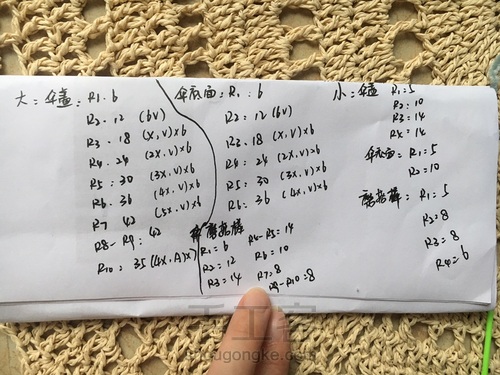 大:伞盖:R1.6
R2.12 (6V)
R3.18 (X,V)×6
R4.24 (2X,V)×6
R5:30 (3X,V)×6
R6:36 (4X,V)×6
R7 42 (5X,V)×6
R8-R9:42
R10:35(4X,A)×7
伞底面:R1:6
R2:12 (6V)
R3.18 (X,V)×6
R4:24 (2X,V)×6
R5:30 (3X,V)×6
R6:36 (4X,V)×6
蘑菇棒
R1=6
R2=12
R3=14
R4-R5=14
R6=10
R7=8
R8-R10=8
小:伞盖 R1=5
R2:10
R3=14
R4=14
伞底面:R1=5
R2=10
蘑菇棒:R1=5
R2=8
R3=8
R4=6
shougongke.com